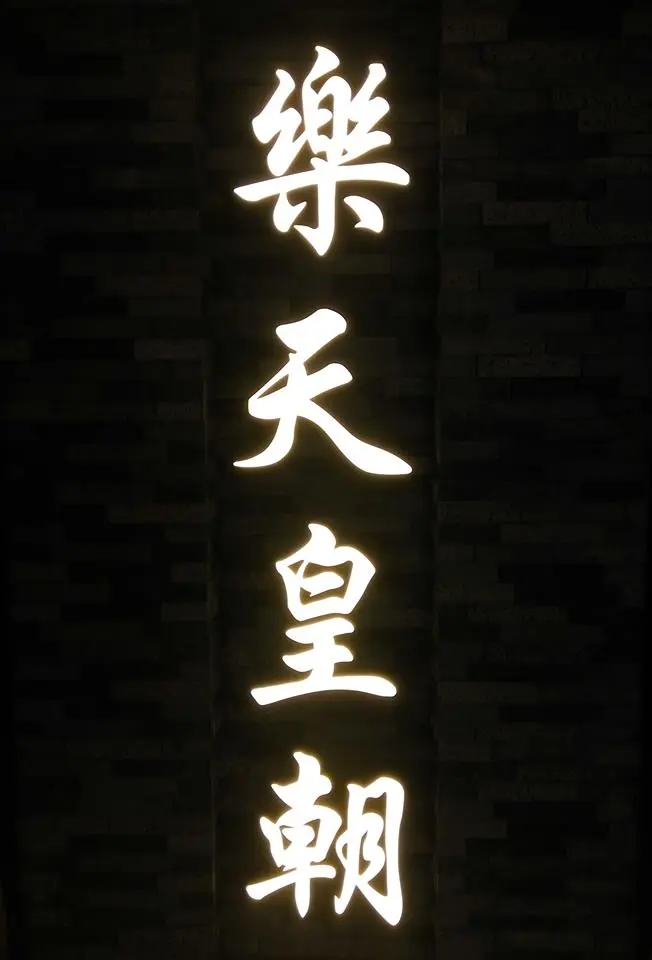 樂天皇朝